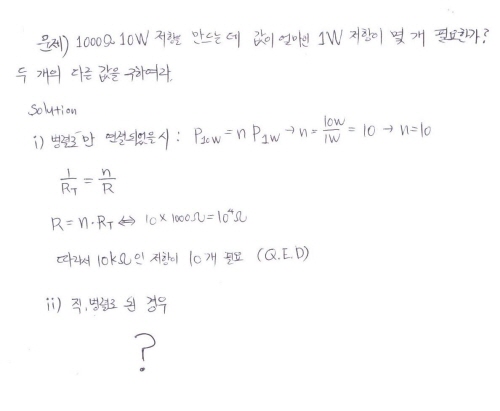 문제) 1000Ω 10W 저항을 만드는 데 값이 얼마인 1W 저항이 몇 개 필요한가?
두 개의 다른 값을 구하여라.
Solution
i) 병렬로만 연결되었을 시 : P₁₀w = n P₁w → n = 10W/1W = 10 → n=10
1/R_T = n/R
R = n·R_T ⟺ 10 × 1000Ω = 10⁴Ω
따라서 10kΩ인 저항이 10개 필요 (Q.E.D)
ii) 직,병렬로 된 경우
?